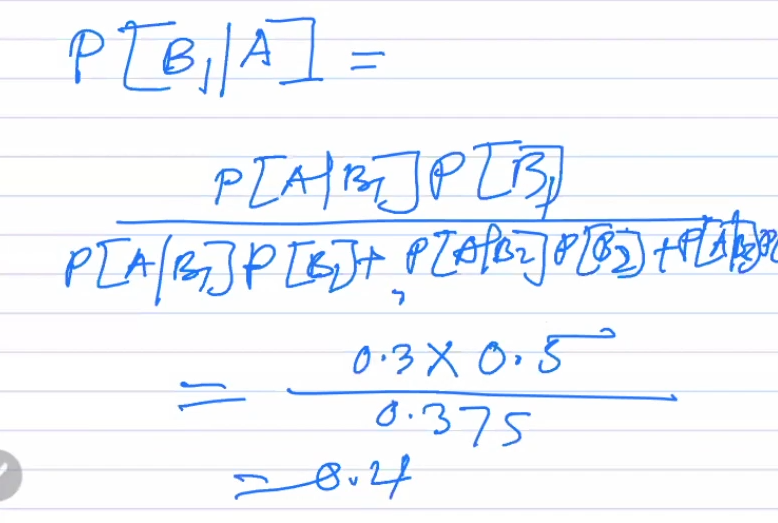 P[B₁|A] =
P[A|B₁]P[B₁]
P[A|B₁]P[B₁]+ P[A|B₂]P[B₂]+P[A|B₃]P[
= 0.3 X 0.5
0.375
= 0.4